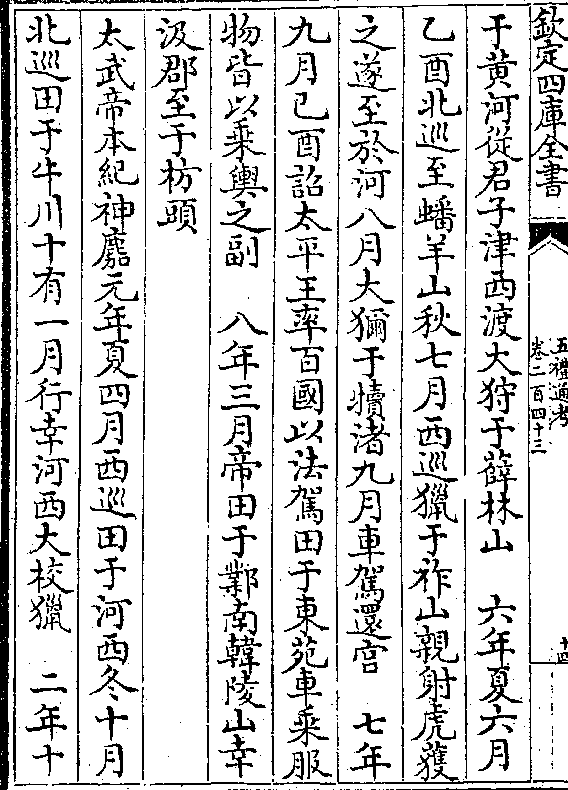 欽定四庫全書
五禮通考
卷二百四十三
十四
于黄河從君子津西渡大狩于薛林山　六年夏六月
乙酉北巡至蟠羊山秋七月西巡獵于祚山親射虎獲
之遂至於河八月大獮于犢渚九月車駕還宫　七年
九月己酉詔太平王率百國以法駕田于東苑車乘服
物皆以乘輿之副　八年三月帝田于鄴南韓陵山幸
汲郡至于枋頭
太武帝本紀神䴥元年夏四月西巡田于河西冬十月
北巡田于牛川十有一月行幸河西大校獵　二年十